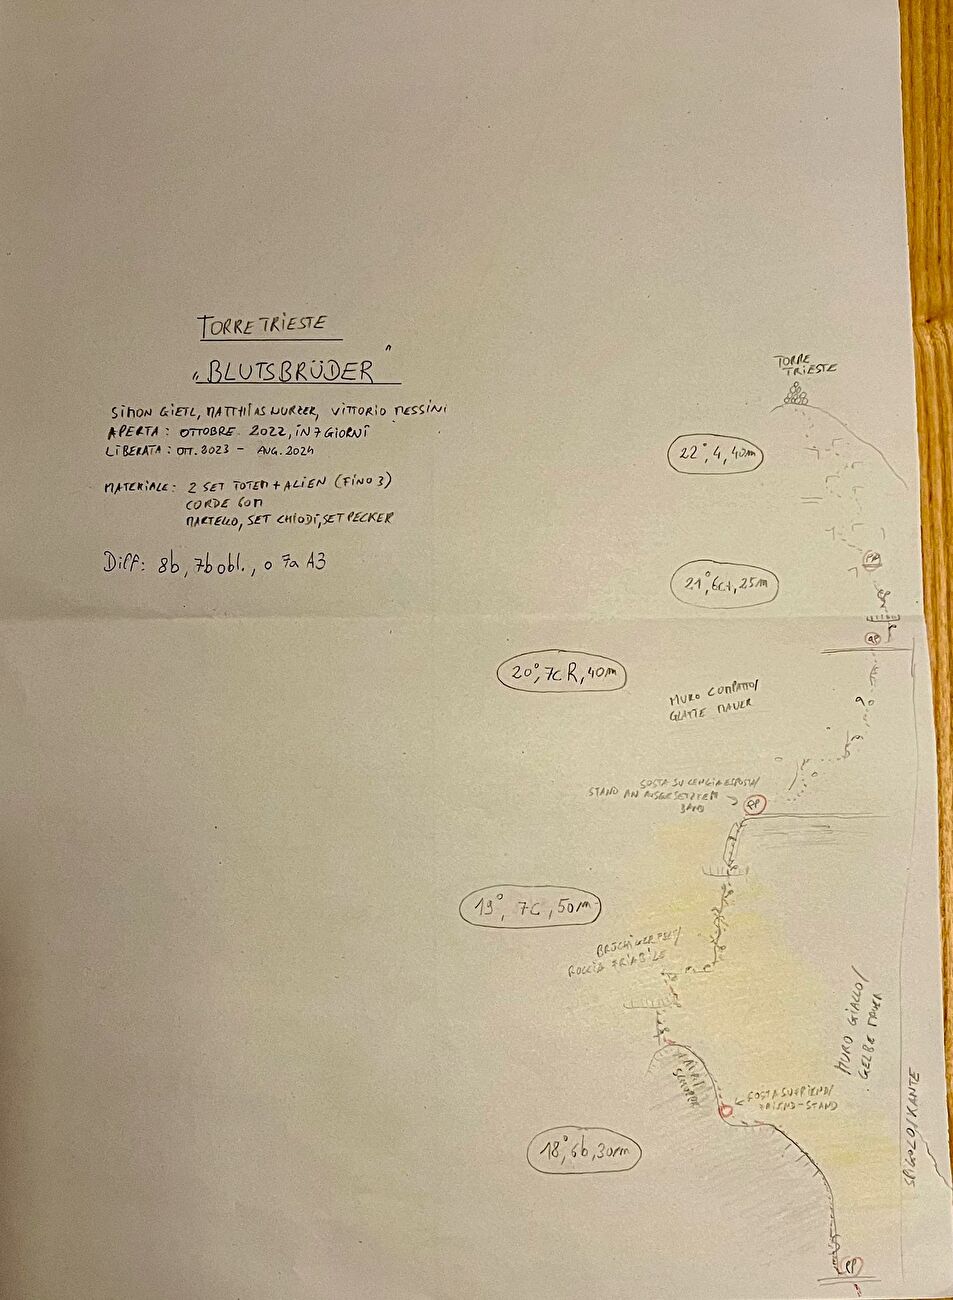 TORRE TRIESTE
„BLUTSBRÜDER"
SIMON GIETL, MATTHIAS WURZER, VITTORIO MESSINI
APERTA: OTTOBRE 2022, IN 7 GIORNI
LIBERATA: OTT. 2023 - AUG. 2024
MATERIALE: 2 SET TOTEM + ALIEN (FINO 3)
CORDE 60M
MARTELLO, SET CHIODI, SET PECKER
Diff: 8b, 7b obl., o 7a A3
TORRE
TRIESTE
22°, 4, 40m
21°, 6c+, 25m
20°, 7c R, 40m
MURO COMPATTO/
GLATTE MAUER
SOSTA SU CENGIA ESPOSTA/
STAND AN AUSGESETZTEM
BAND
19°, 7c, 50m
BRÜCHIGER FELS/
ROCCIA FRIABILE
MURO GIALLO/
GELBE MAUER
SOSTA SU FRIEND/
FRIEND-STAND
18°, 6b, 30m
SPIGOLO/KANTE